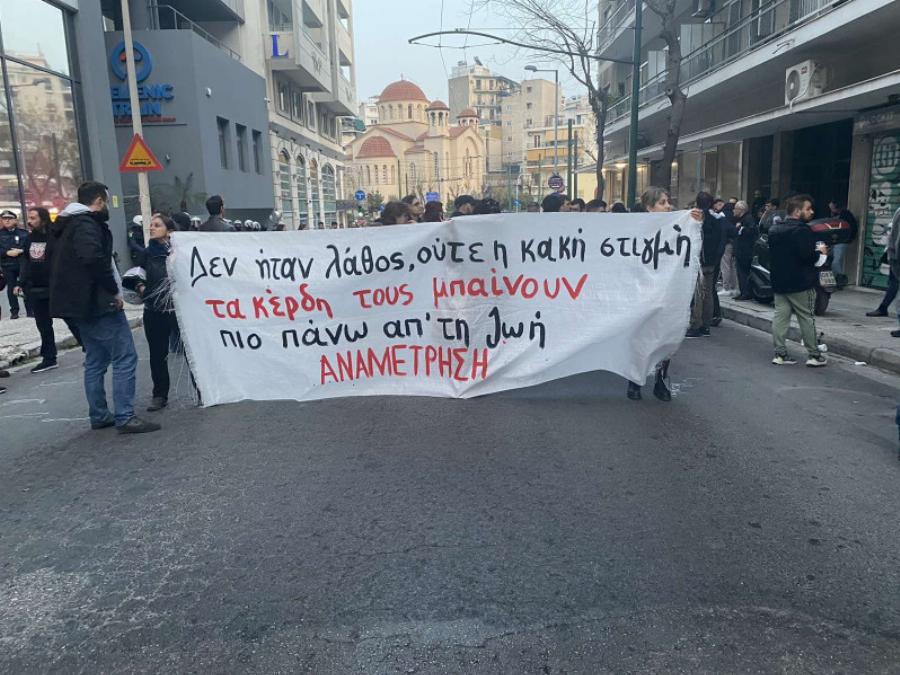 HELLENIC
TRAIN
Δεν ήταν λάθος, ούτε η κακή στιγμή
τα κέρδη τους μπαίνουν
πιο πάνω απ' τη ζωή
ΑΝΑΜΕΤΡΗΣΗ